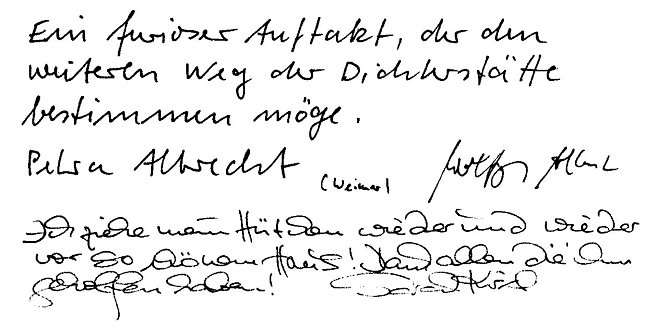 Ein furioser Auftakt, der den
weiteren Weg der Dichterstätte
bestimmen möge.
Petra Albrecht (Weimar) Wolfg
Ich ziehe mein Hütchen wieder und wieder
vor so schönem Haus! Dank allen die ihm
geholfen haben! Sarah